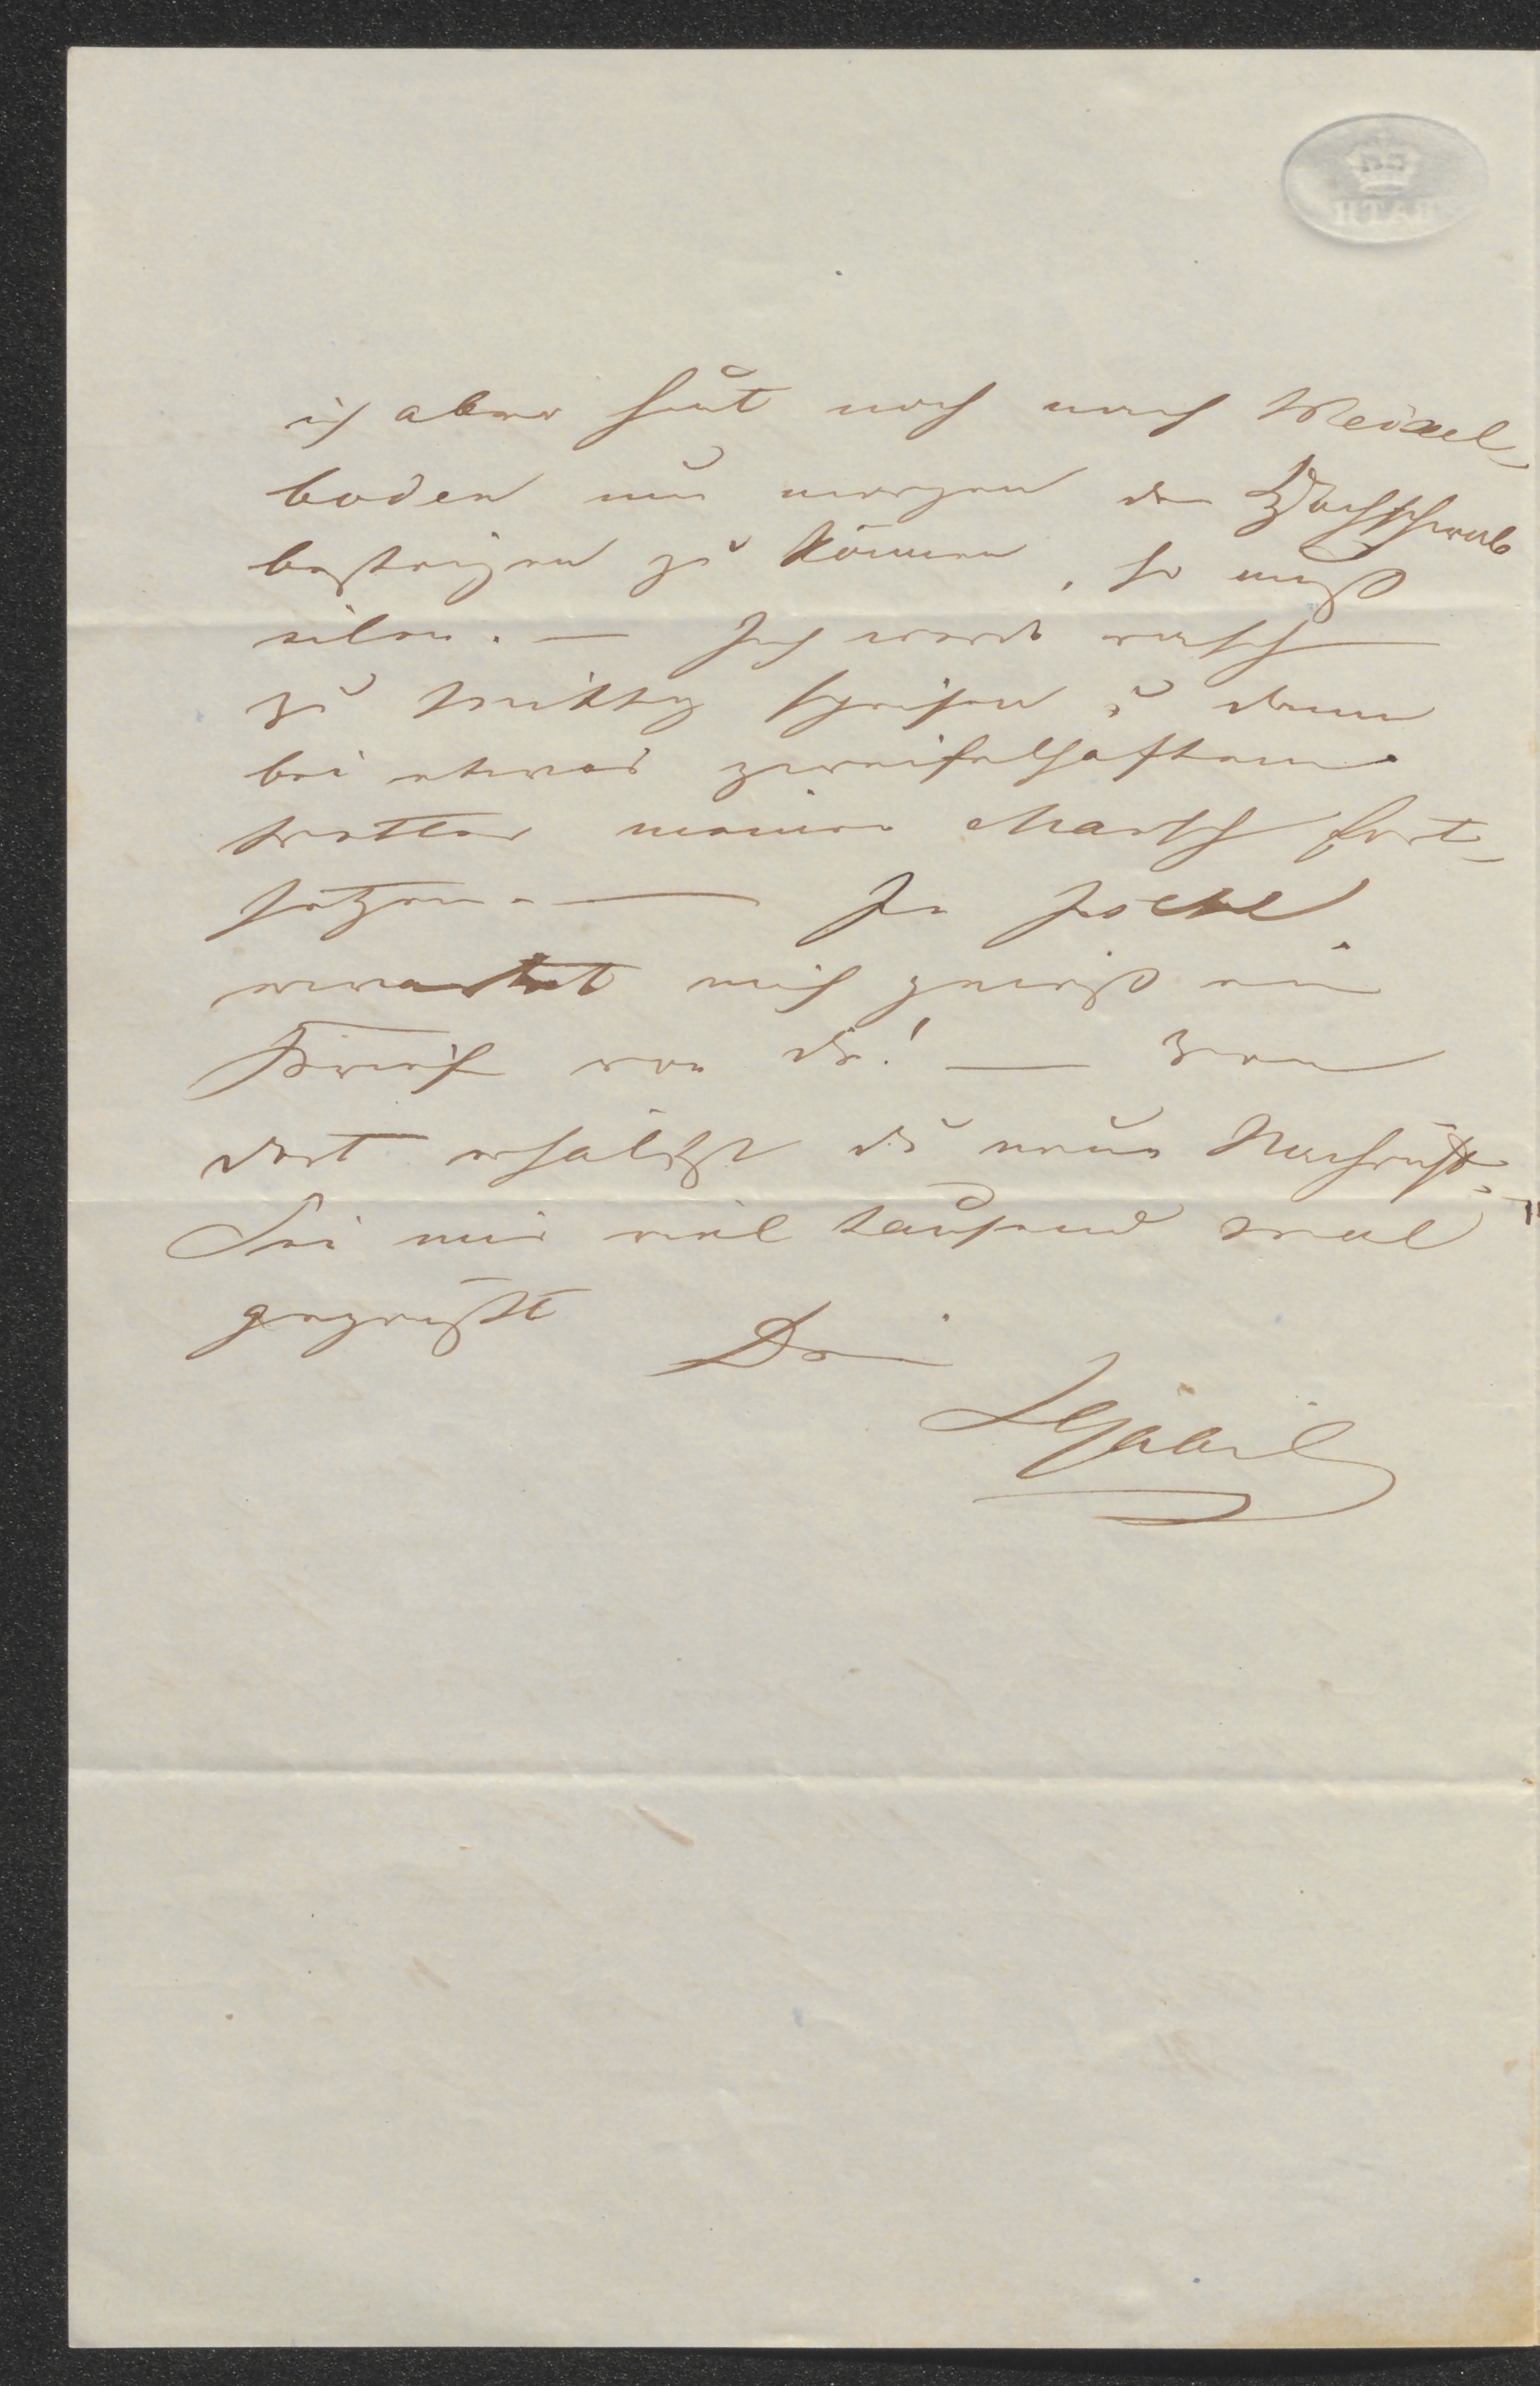 ich aber heut noch nach Weixel-
boden um morgen den Hochschwab
besteigen zu können, so muß
eilen. — Ich werde rasch
zu Mittag speisen u dann
bei etwas zweifelhaftem
Wetter meinen Marsch fort-
setzen. — In Ischl
erwartet mich gewiß ein
Brief von dir! — Von
dort erhältst du neue Nachricht.
Sei mir viel tausend mal
gegrüßt Dein
BATH